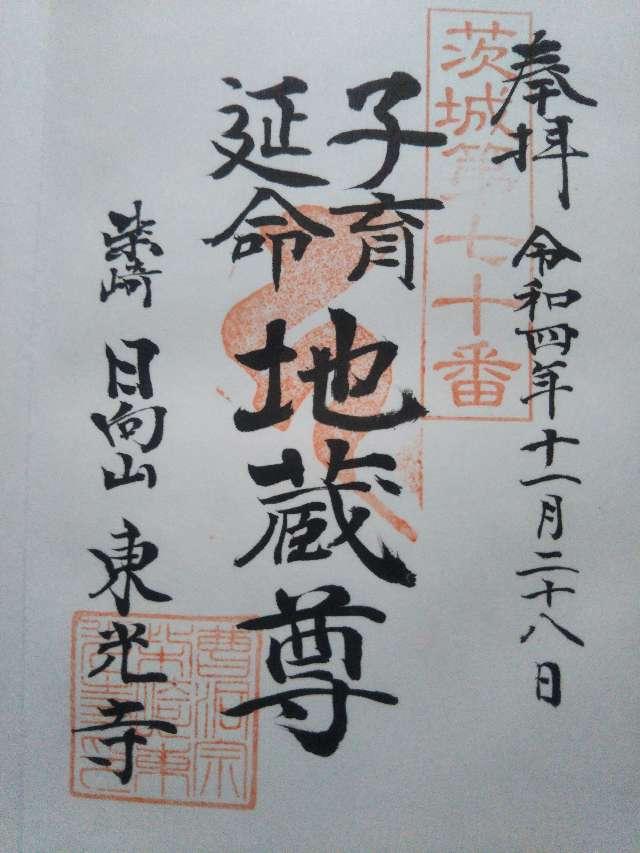 奉拝 令和四年十一月二十八日
茨城第七十番
子育
延命
地蔵尊
柴崎 日向山 東光寺